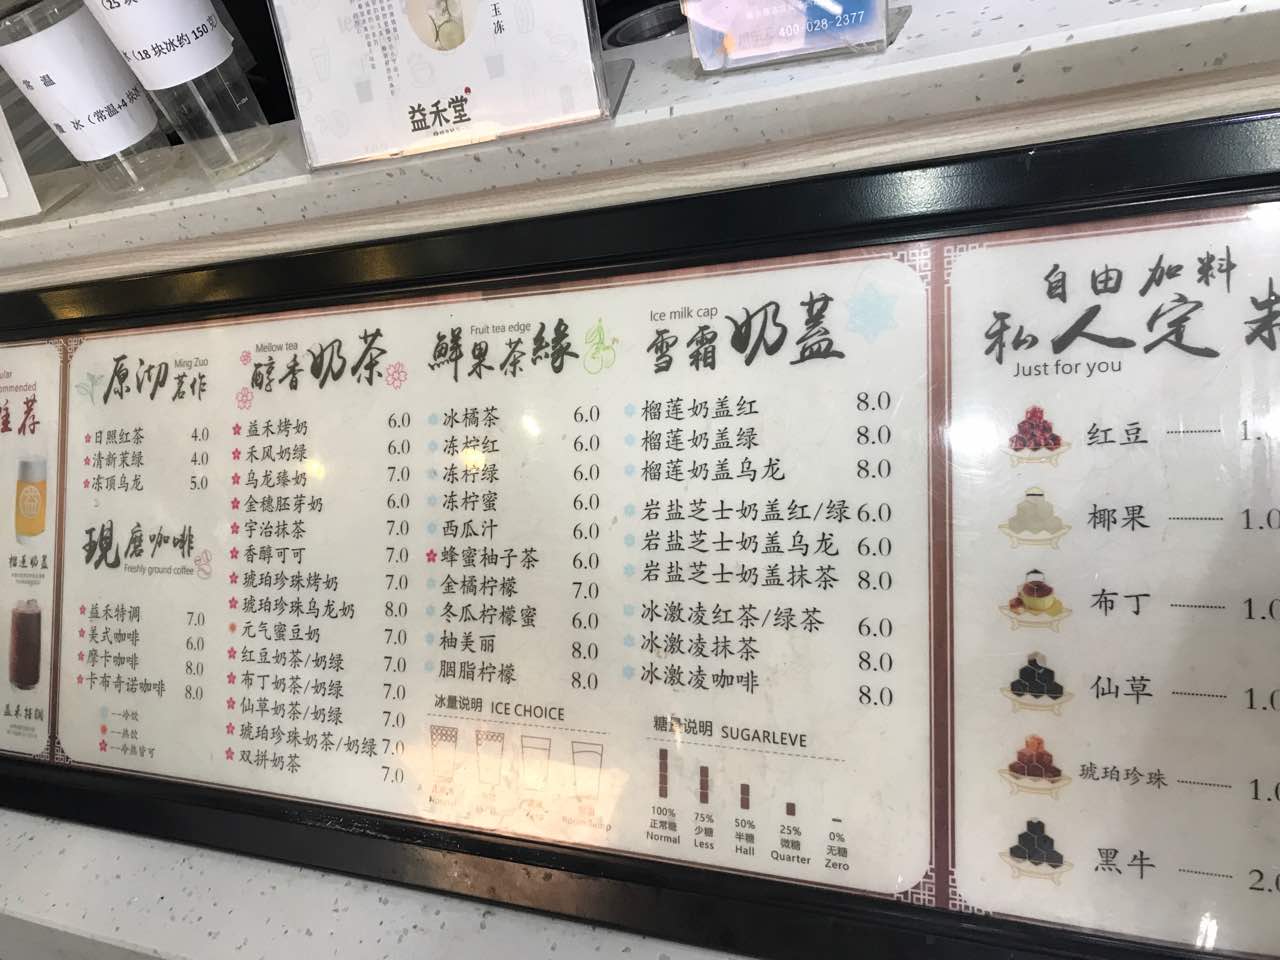 常温
冰(常温+4块冰
冰(18块冰约150克)
玉冻
益禾堂
400-028-2377
推荐
榴莲奶盖
益禾特调
原沏茗作
Ming Zuo
日照红茶 4.0
清新茉绿 4.0
冻顶乌龙 5.0
現磨咖啡
Freshly ground coffee
益禾特调 7.0
美式咖啡 6.0
摩卡咖啡 8.0
卡布奇诺咖啡 8.0
—冷饮
—热饮
—冷热皆可
Mellow tea
醇香奶茶
益禾烤奶 6.0
禾风奶绿 6.0
乌龙臻奶 7.0
金穗胚芽奶 6.0
宇治抹茶 7.0
香醇可可 7.0
琥珀珍珠烤奶 7.0
琥珀珍珠乌龙奶 8.0
元气蜜豆奶 7.0
红豆奶茶/奶绿 7.0
布丁奶茶/奶绿 7.0
仙草奶茶/奶绿 7.0
琥珀珍珠奶茶/奶绿 7.0
双拼奶茶 7.0
Fruit tea edge
鮮果茶緣
冰橘茶 6.0
冻柠红 6.0
冻柠绿 6.0
冻柠蜜 6.0
西瓜汁 6.0
蜂蜜柚子茶 6.0
金橘柠檬 7.0
冬瓜柠檬蜜 6.0
柚美丽 8.0
胭脂柠檬 8.0
冰量说明 ICE CHOICE
Ice milk cap
雪霜奶蓋
榴莲奶盖红 8.0
榴莲奶盖绿 8.0
榴莲奶盖乌龙 8.0
岩盐芝士奶盖红/绿 6.0
岩盐芝士奶盖乌龙 6.0
岩盐芝士奶盖抹茶 8.0
冰激凌红茶/绿茶 6.0
冰激凌抹茶 8.0
冰激凌咖啡 8.0
糖量说明 SUGARLEVE
100% 75% 50% 25% 0%
正常糖 少糖 半糖 微糖 无糖
Normal Less Hall Quarter Zero
自由加料
私人定
Just for you
红豆 1.
椰果 1.0
布丁 1.0
仙草 1.0
琥珀珍珠 1.0
黑牛 2.0